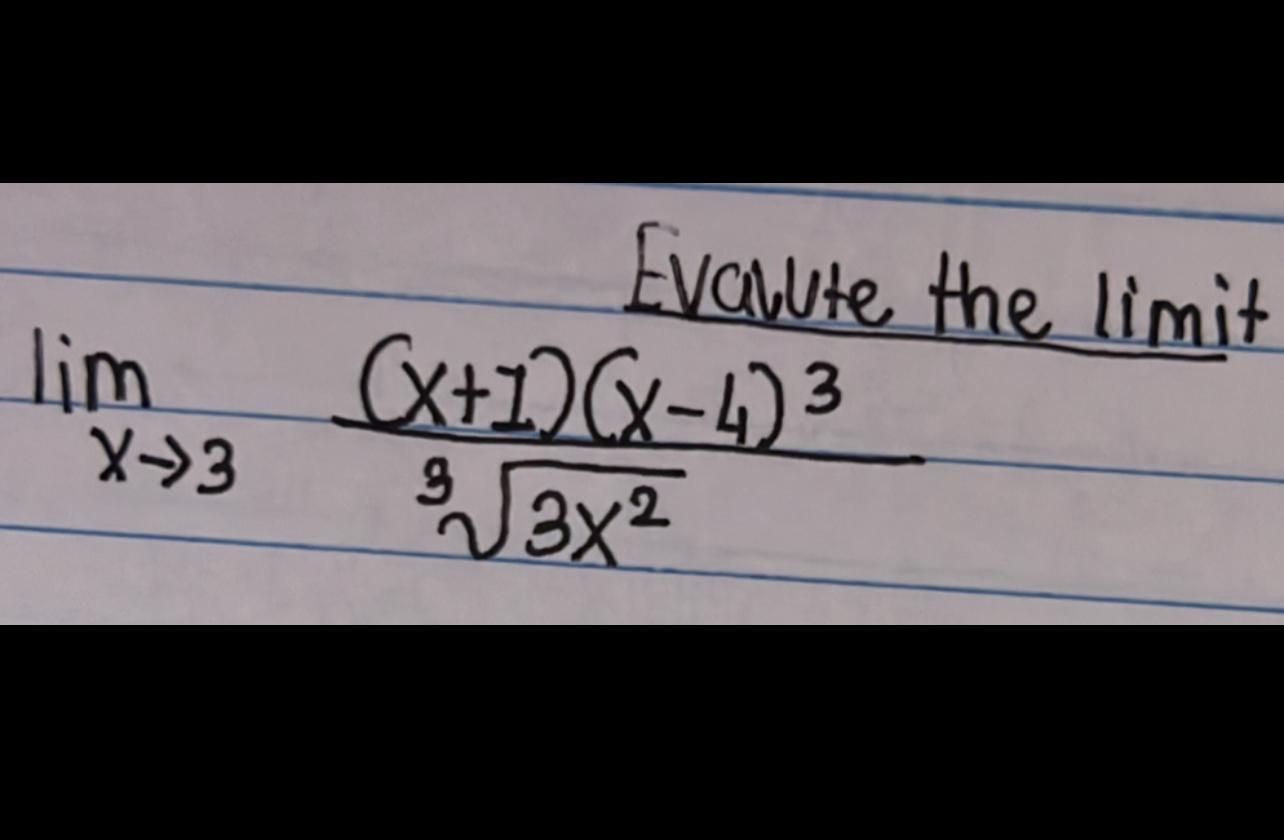 Evalute the limit
lim (x+1)(x-4)³
x→3 ³√3x²